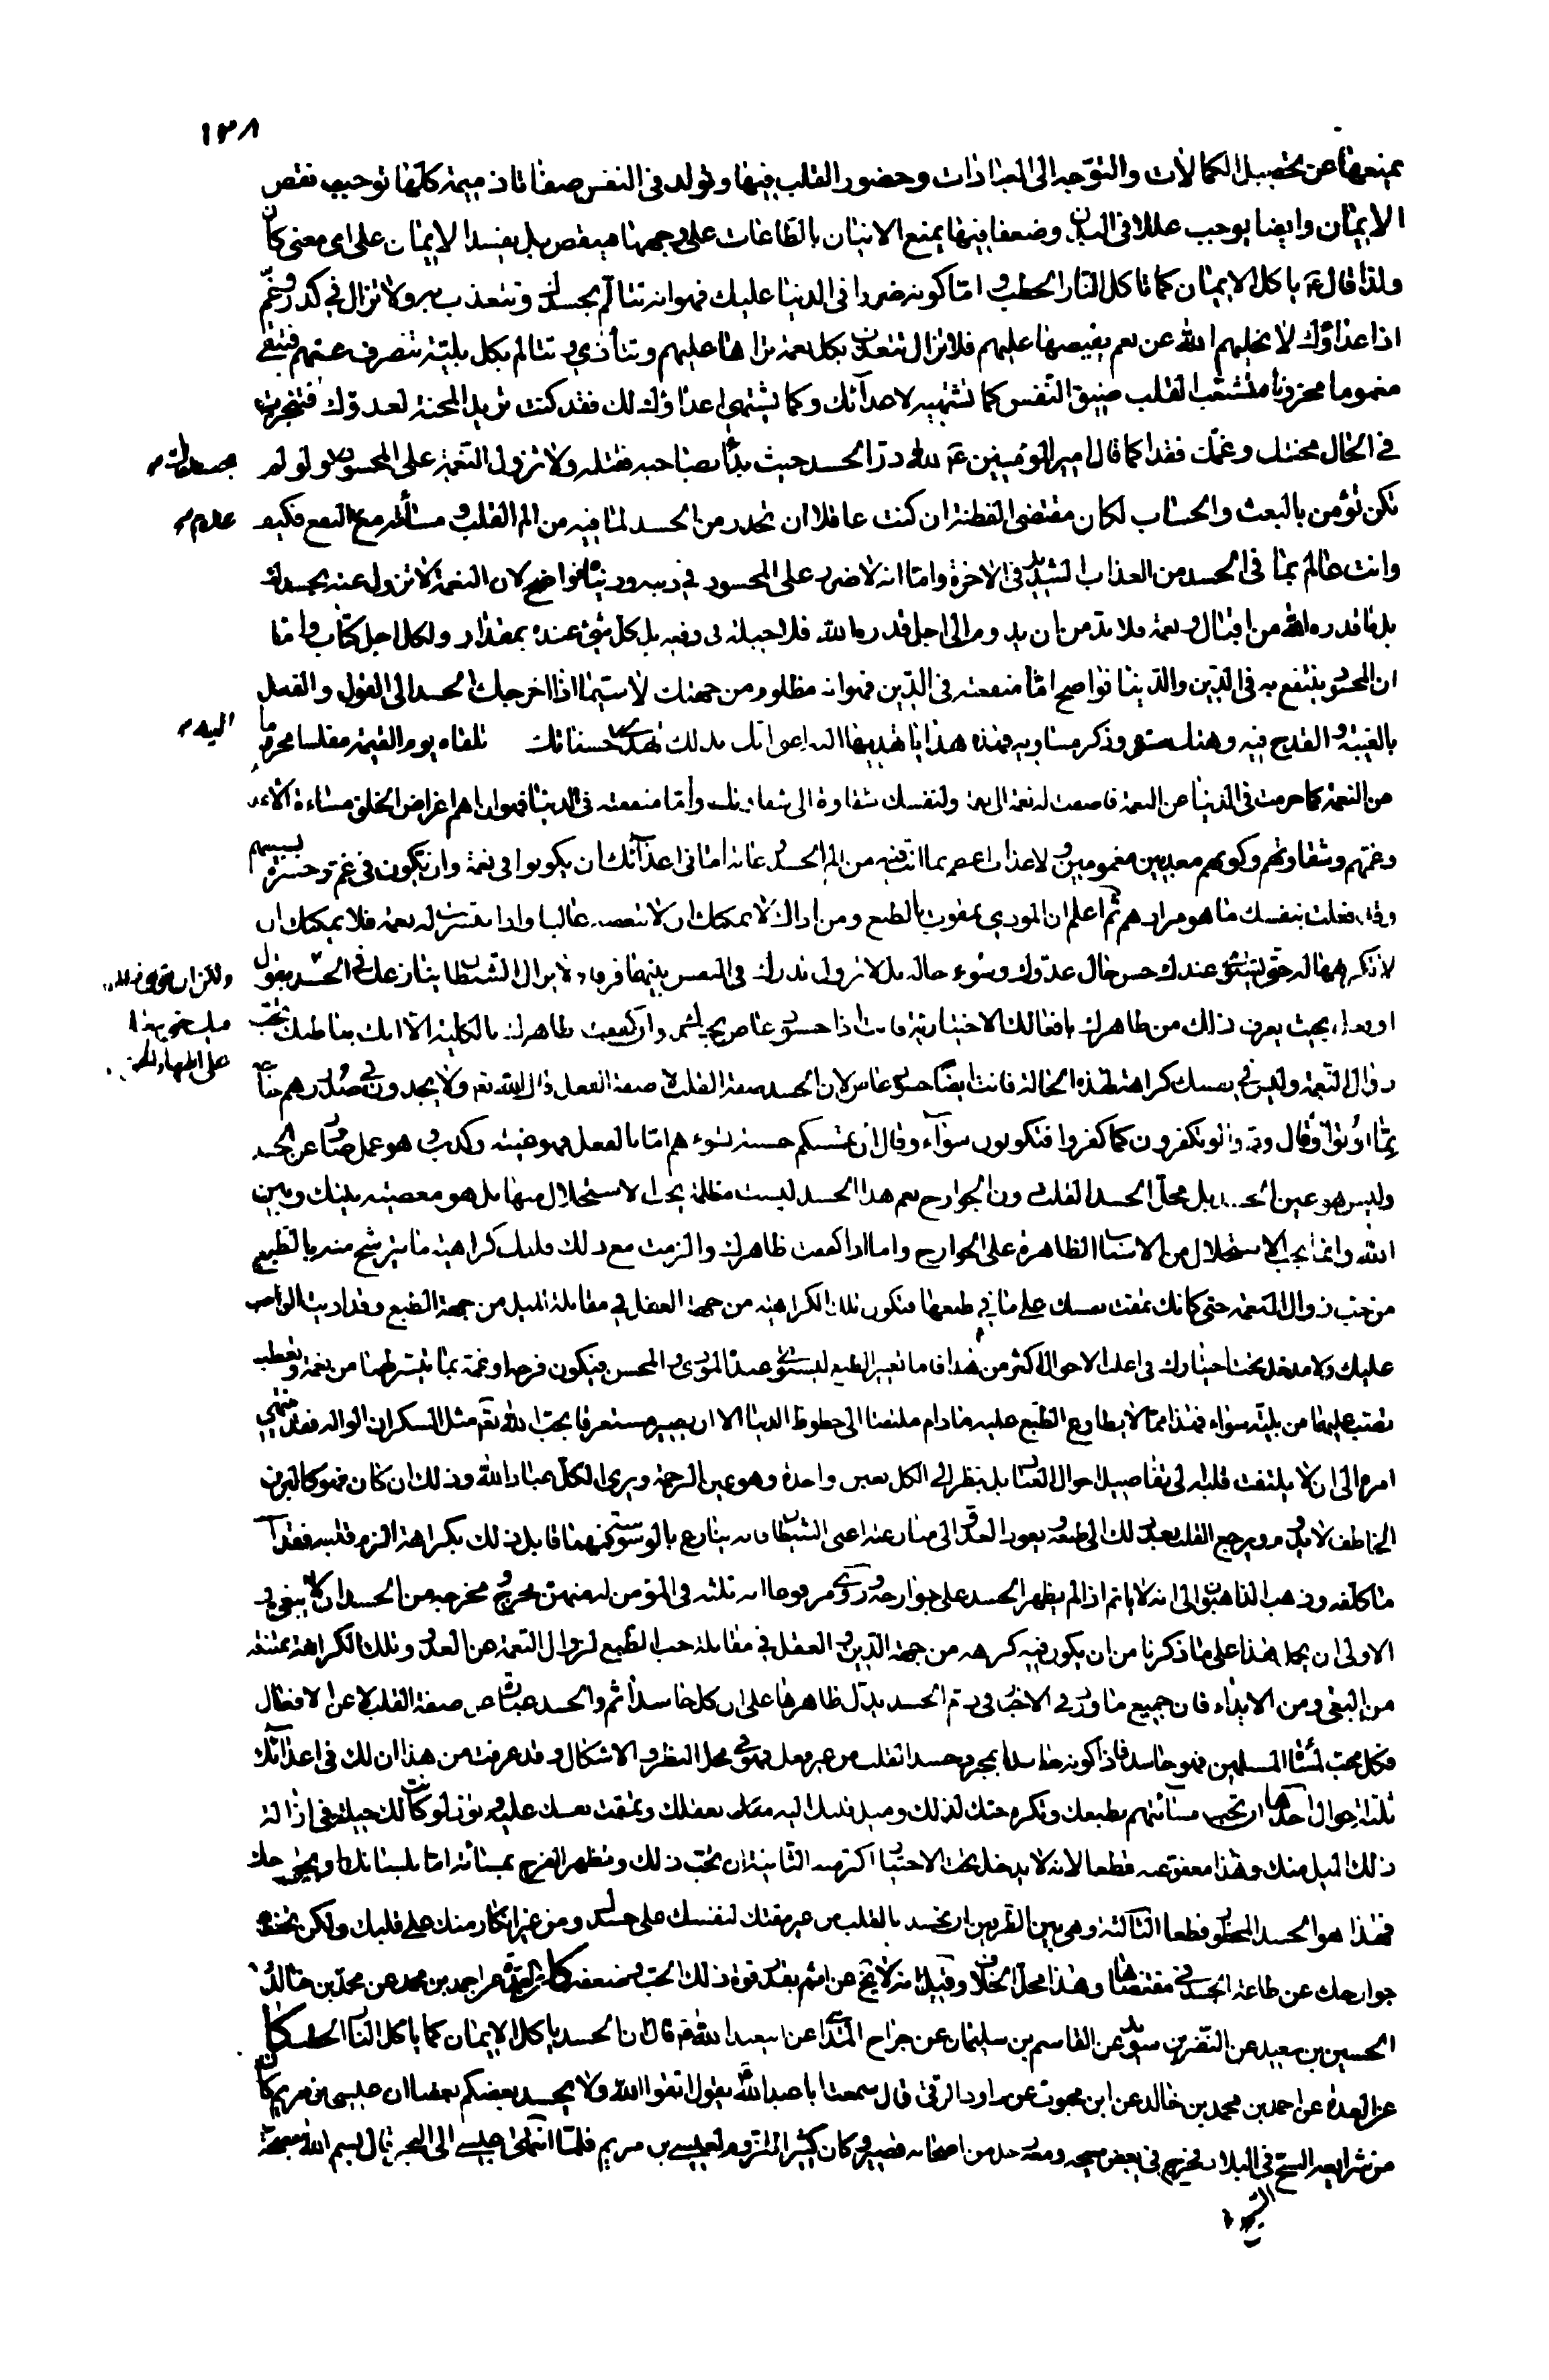 ١٣٨
يمنعها عن تحصيل الكمالات والتوجه الى العبادات وحضور القلب فيها وتولد في النفس صفاتا ذميمة كلها توجب نقص
الايمان وايضا يوجب عللا في البدن وضعفا فيها يمنع الاتيان بالطاعات على وجهها فينقص بل يفسد الايمان على اى معنى كان
ولذا قال ع ياكل الايمان كما تاكل النار الحطب و اما كونه ضررا في الدنيا عليك فهو انه تتالم بحسدك وتتعذب به ولا تزال في كدر وغم
اذ اعداؤك لا يخليهم الله عن نعم يفيضها عليهم فلا تزال تتعذب بكل نعمة تراها عليهم وتتأذى و تتالم بكل بلية تنصرف عنهم فتبقى
مغموما محزونا متشعب القلب ضيق النفس كما تشتهيه لاعدائك وكما يشتهى اعداؤك لك فقد كنت تريد المحنة لعدوك فتنجزت
في الحال محنتك وغمك نقدا كما قال امير المؤمنين ع لله در الحسد حيث بدأ بصاحبه فقتله ولا تزول النعمة على المحسود ولو لم
تكن تؤمن بالبعث والحساب لكان مقتضى الفطنة ان كنت عاقلا ان تحذر من الحسد لما فيه من الم القلب و مسائته مع عدم النفع فكيف
وانت عالم بما في الحسد من العذاب الشديد في الاخرة واما انه لا ضرر على المحسود في دينه ودنياه فواضح لان النعمة لا تزول عنه بحسدك
بل ما قدره الله من اقبال و نعمة فلا بد من ان يدوم الى اجل قدره الله فلا حيلة في دفعه بل كل شيء عنده بمقدار ولكل اجل كتاب واما
ان المحسود ينتفع به في الدين والدنيا فواضح اما منفعته في الدين فهو انه مظلوم من جهتك لا سيما اذا اخرجك الحسد الى القول والفعل
بالغيبة و القدح فيه وهتك ستره وذكر مساويه فهذه هدايا تهديها اليه اعنى انك بذلك تهدى حسناتك اليه تلقاه يوم القيمة مفلسا محروما
من النعمة كما حرمت في الدنيا عن النعمة فاضفت له نعمة الى نعمة ولنفسك شقاوة الى شقاوتك واما منفعته في الدنيا فهو ان اهم اغراض الخلق مساءة الاعداء
وغمهم وشقاوتهم وكونهم معذبين مغمومين ولا عذاب اعظم مما انت فيه من الم الحسد و غاية امانى اعدائك ان يكونوا في نعمة وان تكون في غم وحسرة بسببهم
وقد فعلت بنفسك ما هو مرادهم ثم اعلم ان الموذي ممقوت بالطبع ومن اذاك لا يمكنك ان لا تبغضه غالبا واذا تيسرت له نعمة فلا يمكنك ان
لا تكرهها له حتى يستوى عندك حسن حال عدوك وسوء حاله بل لا تزول تدرك في النفس بينهما فرقا ولا يزال الشيطان ينازعك في الحسد بقول
او بفعل بحيث يعرف ذلك من ظاهرك بافعالك الاختيارية فانت اذا حسود عاص وان كففت ظاهرك بالكلية الا انك بباطنك تحب
زوال النعمة وليس في نفسك كراهة لهذه الحالة فانت ايضا حسود عاص لان الحسد صفة القلب لا صفة الفعل قال الله تعالى ولا يجدون في صدورهم حاجة
مما اوتوا وقال ودوا لو تكفرون كما كفروا فتكونون سواء وقال ان تمسسكم حسنة تسوءهم اما الفعل فهو غيبة وكذب و هو عمل صادر عن الحسد
وليس هو عين الحسد بل محل الحسد القلب دون الجوارح نعم هذا الحسد ليست مظلمة يجب الاستحلال منها بل هو معصية بينك وبين
الله وانما يجب الاستحلال من الاسباب الظاهرة على الجوارح واما اذا كففت ظاهرك والزمت مع ذلك قلبك كراهية ما يترشح منه بالطبع
من حب زوال النعمة حتى كانك تمقت نفسك على ما في طبعها فتكون تلك الكراهية من جهة العقل في مقابلة الميل من جهة الطبع وقد اديت الواجب
عليك ولا مدخل تحت اختيارك في اغلب الاحوال اكثر من هذا فاما تغيير الطبع ليستوى عنده الموذى و المحسن فيكون فرحه او غمه بما تيسر لهما من نعمة
تصب عليهما من بلية سواء فهذا مما لا يطاوع الطبع عليه ما دام ملتفتا الى حظوظ الدنيا الا ان يصير مستغرقا بحب الله تعالى مثل السكران الواله فقد ينتهى
امره الى ان لا يلتفت قلبه الى تفاصيل احوال العباد بل ينظر الى الكل بعين واحدة وهو عين الرحمة ويرى الكل عباد الله وذلك ان كان فهو كالبرق
الخاطف لا يدوم ويرجع القلب بعد ذلك الى طبعه و يعود العدو الى منازعته اعنى الشيطان فانه ينازع بالوسوسة فمهما قابل ذلك بكراهة الزم قلبه فقد ادى
ما كلفه وذهب الذاهبون الى انه لا ياثم اذا لم يظهر الحسد على جوارحه و روى مرفوعا انه ثلثة في المؤمن له منهن مخرج و مخرجه من الحسد ان لا يبغى و
الاولى ان يحمل هذا على ما ذكرنا من ان يكون فيه كرهه من جهة الدين و العقل في مقابلة حب الطبع لزوال النعمة عن العدو وتلك الكراهة تمنعه
من البغى ومن الايذاء فان جميع ما ورد في الاخبار في ذم الحسد يدل ظاهرها على ان كل حاسد آثم والحسد عبارة عن صفة القلب لا عن الافعال
فكل محب لمسائة المسلمين فهو حاسد فاذا كونه حاسدا بمجرد حسد القلب من غير فعل فهو في محل النظر و الاشكال وقد عرفت من هذا ان لك في اعدائك
ثلثة احوال احدها ان تحب مسائتهم بطبعك وتكره حبك لذلك وميل قلبك اليه بعقلك وتمقت نفسك عليه و تود لو كانت لك حيلة في ازالة
ذلك الميل منك وهذا معفو عنه قطعا لانه لا يدخل تحت الاختيار اكثر منه الثانية ان تحب ذلك وتظهر الفرح بمسائته اما بلسانك او بجوارحك
فهذا هو الحسد المحظور قطعا الثالثة وهى بين الطرفين ان تحسد بالقلب من غير مقتك لنفسك على حسدك ومن غير انكار منك على قلبك ولكن تحفظ
جوارحك عن طاعة الحسد في مقتضاها وهذا محل الخلاف وقيل انه لا يخ عن اثم بقدر قوة ذلك الحب و ضعفه كا عن العدة عن احمد بن محمد عن محمد بن خالد و
الحسين بن سعيد عن النضر بن سويد عن القاسم بن سليمان عن جراح المدائني عن ابيعبد الله ع قال ان الحسد ياكل الايمان كما ياكل النار الحطب كا
عن العدة عن احمد بن محمد بن خالد عن ابن محبوب عن داود الرقى قال سمعت ابا عبد الله ع يقول اتقوا الله ولا يحسد بعضكم بعضا ان عيسى بن مريم كان
من شرايعه السيح في البلاد فخرج في بعض سيحه ومعه رجل من اصحابه قصير و كان كثير اللزوم لعيسى بن مريم فلما انتهى عيسى الى البحر قال بسم الله بصحة